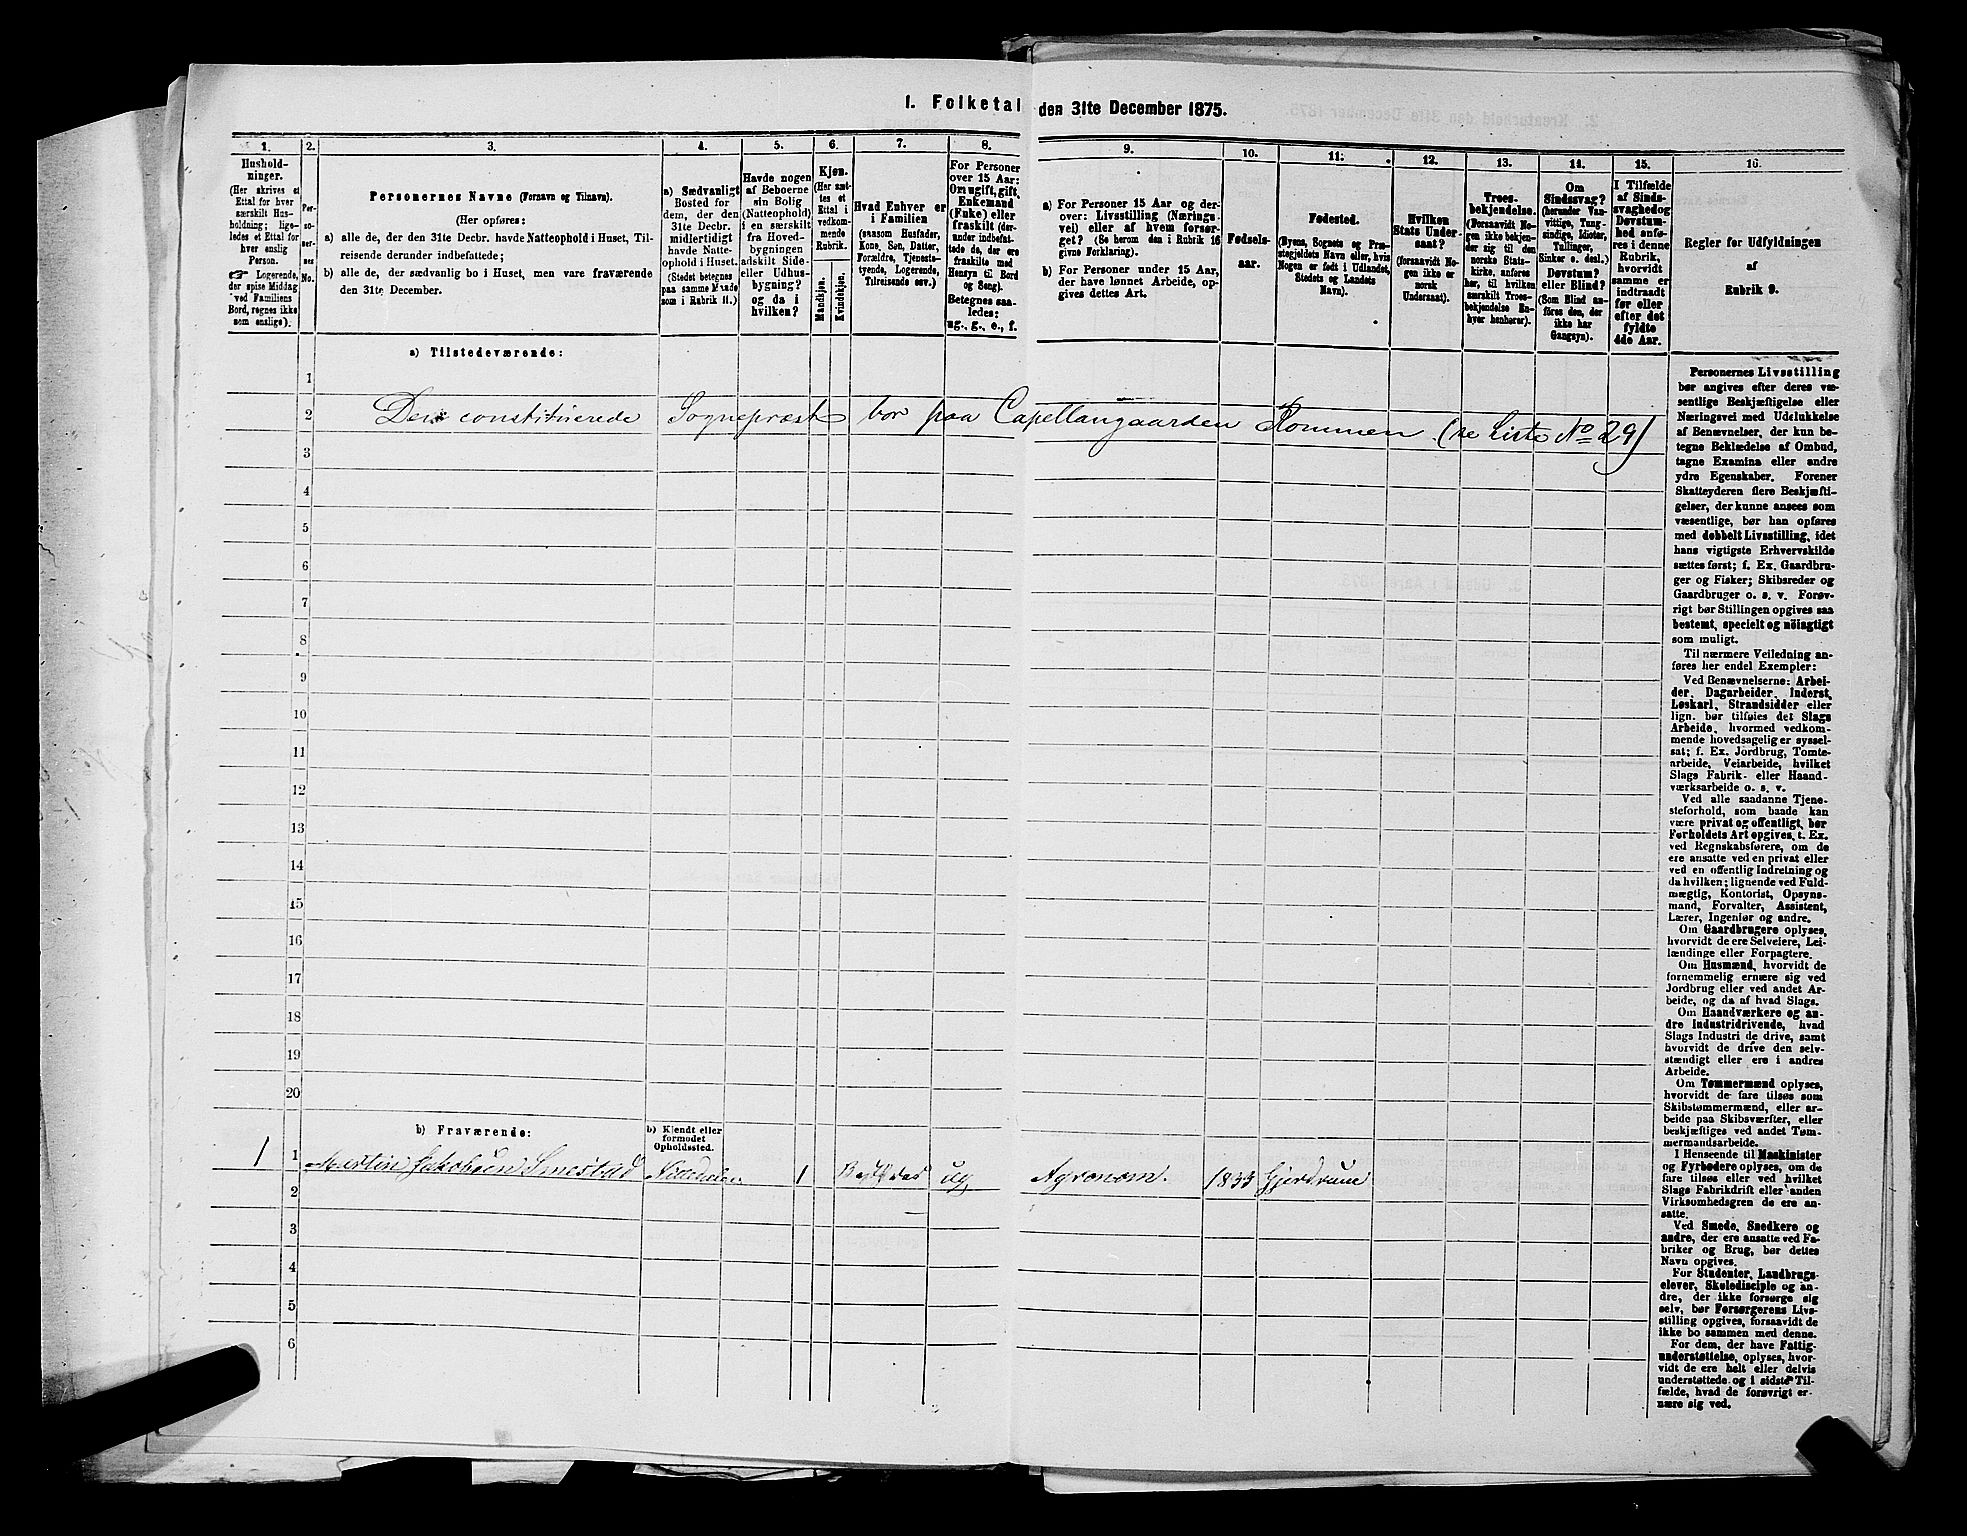 1. Folketal den 31te December 1875.
1.
Hushold-
ninger.
(Her skrives et
Ettal for hver
særskilt Hus-
holdning; lige-
ledes et Ettal for
hver enslig
Person.
☞ Logerende,
der spise Middag
ved Familiens
Bord, regnes ikke
som enslige).
2.
Per-
so-
ner-
nes
No.
3.
Personernes Navne (Fornavn og Tilnavn).
(Her opføres:
a) alle de, der den 31te Decbr. havde Natteophold i Huset, Til-
reisende derunder indbefattede;
b) alle de, der sædvanlig bo i Huset, men vare fraværende
den 31te December.
4.
a) Sædvanligt
Bosted for
dem, der den
31te Decbr.
midlertidigt
havde Natte-
ophold i Huset.
(Stedet betegnes
paa samme Maade
som i Rubrik 11.)
5.
Havde nogen
af Beboerne
sin Bolig
(Natteophold)
i en særskilt
fra Hoved-
bygningen
adskilt Side-
eller Udhus-
bygning?
og da i
hvilken?
6.
Kjøn.
(Her sæt-
tes et
Ettal i
vedkom-
mende
Rubrik.
Mandkjøn.
Kvindekjøn.
7.
Hvad Enhver er
i Familien
(saasom Husfader,
Kone, Søn, Datter,
Forældre, Tjeneste-
tyende, Logerende,
Tilreisende osv.)
8.
For Personer
over 15 Aar:
Om ugift, gift,
Enkemand
(Enke) eller
fraskilt (der-
under indbefat-
tede de, der ere
fraskilte med
Hensyn til Bord
og Seng).
Betegnes saa-
ledes:
ug., g., e., f.
9.
a) For Personer 15 Aar og der-
over: Livsstilling (Nærings-
vei) eller af hvem forsør-
get? (Se herom den i Rubrik 16
givne Forklaring).
b) For Personer under 15 Aar,
der have lønnet Arbeide, op-
gives dettes Art.
10.
Fødsels-
aar.
11.
Fødested.
(Byens, Sognets og Præ-
stegjeldets Navn eller, hvis
Nogen er født i Udlandet,
Stedets og Landets
Navn).
12.
Hvilken
Stats Under-
saat?
(forsaavidt No-
gen ikke er
norsk
Undersaat).
13.
Troes-
bekjendelse.
(Forsaavidt No-
gen ikke bekjen-
der sig til den
norske Stats-
kirke, anføres
her, til hvilken
særskilt Troes-
bekjendelse En-
hver henhører).
14.
Om
Sindssvag?
(herunder Van-
vittige, Tung-
sindige, Idioter,
Tullinger,
Sinker o. desl.)
Døvstum?
eller Blind?
(Som Blind an-
føres den, der
ikke har
Gangsyn).
15.
I Tilfælde
af Sinds-
svaghed og
Døvstum-
hed anfø-
res i denne
Rubrik,
hvorvidt
samme er
indtraadt
før eller
efter det
fyldte
4de Aar.
16.
Regler for Udfyldningen
af
Rubrik 9.
a) Tilstedeværende:
1
2 Den constituerede Sogneprest bor paa Capellangaarden Rommen (se Liste No 29)
3
4
5
6
7
8
9
10
11
12
13
14
15
16
17
18
19
20
b) Fraværende:
b) Kjendt eller
formodet
Opholdssted.
1 1 Martin Jakobsen Smestad 1 ug Agronom. 1833 Gjerdrum
2
3
4
5
6
Personernes Livsstilling
bør angives efter deres væ-
sentlige Beskjæftigelse eller
Næringsvei med Udelukkelse
af Benævnelser, der kun be-
tegne Beklædelse af Ombud,
tagne Examina eller andre
ydre Egenskaber. Forener
Skatteyderen flere Beskjæfti-
gelser, der kunne ansees som
væsentlige, bør han opføres
med dobbelt Livsstilling, idet
hans vigtigste Erhvervskilde
sættes først; f. Ex. Gaardbru-
ger og Fisker; Skibsreder og
Gaardbruger o. s. v. Forøv-
rigt bør Stillingen opgives saa
bestemt, specielt og nöiagtigt
som muligt.
Til nærmere Veiledning an-
føres her endel Exempler:
Ved Benævnelserne: Arbei-
der, Dagarbeider, Inderst,
Løskarl, Strandsidder eller
lign. bør tilføies det Slags
Arbeide, hvormed vedkom-
mende hovedsagelig er syssel-
sat; f. Ex. Jordbrug, Tomte-
arbeide, Veiarbeide, hvilket
Slags Fabrik- eller Haand-
værksarbeide o. s. v.
Ved alle saadanne Tjene-
steforhold, som baade kan
være privat og offentligt, bør
Forholdets Art opgives, t. Ex.
ved Regnskabsførere, om de
ere ansatte ved en privat eller
ved en offentlig Indretning og
da hvilken; lignende ved Fuld-
mægtig, Kontorist, Opsyns-
mand, Forvalter, Assistent,
Lærer, Ingeniør og andre.
Om Gaardbrugere oplyses,
hvorvidt de ere Selveiere, Lei-
lændinge eller Forpagtere.
Om Husmænd, hvorvidt de
fornemmelig ernære sig ved
Jordbrug eller ved andet Ar-
beide, og da af hvad Slags.
Om Haandværkere og an-
dre Industridrivende, hvad
Slags Industri de drive, samt
hvorvidt de drive den selv-
stændigt eller ere i andres
Arbeide.
Om Tømmermænd oplyses,
hvorvidt de fare tilsøs som
Skibstømmermænd, eller ar-
beide paa Skibsværfter, eller
beskjæftiges ved andet Tøm-
mermandsarbeide.
I Henseende til Maskinister
og Fyrbødere oplyses, om de
fare tilsøs eller ved hvilket
Slags Fabrikdrift eller anden
Virksomhedsgren de ere an-
satte.
Ved Smede, Snedkere og
andre, der ere ansatte ved Fa-
briker og Brug, bør dettes
Navn opgives.
For Studenter, Landbrugs-
elever, Skoledisciple og an-
dre, der ikke forsørge sig
selv, bør Forsørgerens Livs-
stilling opgives, forsaavidt de
ikke bo sammen med denne.
For dem, der have Fattig-
understøttelse, oplyses, hvor-
vidt de ere helt eller delvis
understøttede og i sidste Til-
fælde, hvad de forøvrigt er-
nære sig ved.